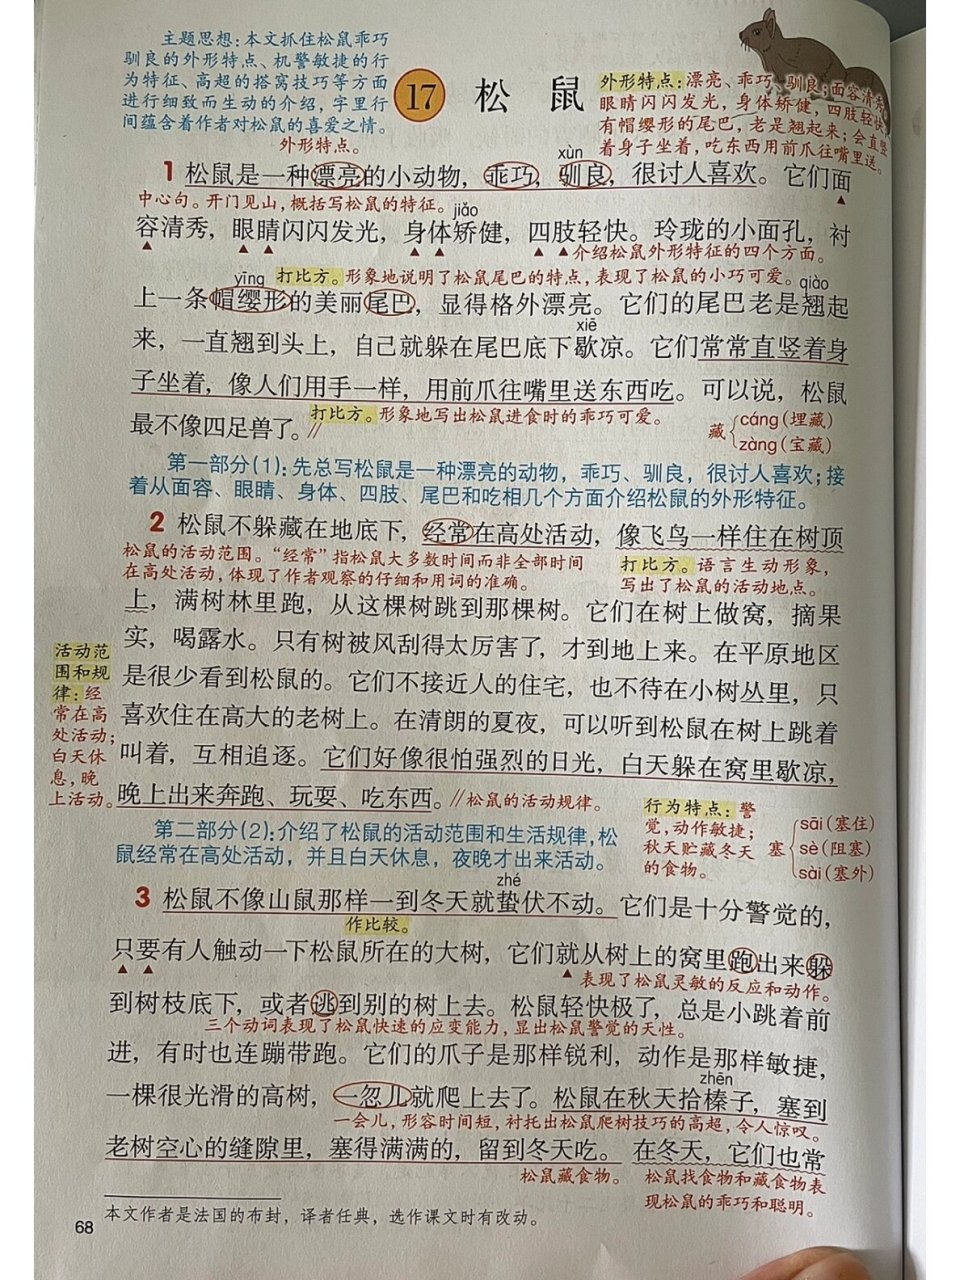 主题思想:本文抓住松鼠乖巧
驯良的外形特点、机警敏捷的行
为特征、高超的搭窝技巧等方面
进行细致而生动的介绍,字里行
间蕴含着作者对松鼠的喜爱之情。
17 松鼠
外形特点:漂亮、乖巧、驯良;面容清秀
眼睛闪闪发光,身体矫健,四肢轻快
有帽缨形的尾巴,老是翘起来;会直竖
着身子坐着,吃东西用前爪往嘴里送。
外形特点。
xùn
1 松鼠是一种漂亮的小动物,乖巧,驯良,很讨人喜欢。它们面
中心句。开门见山,概括写松鼠的特征。
jiǎo
容清秀,眼睛闪闪发光,身体矫健,四肢轻快。玲珑的小面孔,衬
介绍松鼠外形特征的四个方面。
yīng 打比方。形象地说明了松鼠尾巴的特点,表现了松鼠的小巧可爱。qiào
上一条帽缨形的美丽尾巴,显得格外漂亮。它们的尾巴老是翘起
xiē
来,一直翘到头上,自己就躲在尾巴底下歇凉。它们常常直竖着身
子坐着,像人们用手一样,用前爪往嘴里送东西吃。可以说,松鼠
打比方。形象地写出松鼠进食时的乖巧可爱。
最不像四足兽了。//
藏 cáng(埋藏)
zàng(宝藏)
第一部分(1):先总写松鼠是一种漂亮的动物,乖巧、驯良,很讨人喜欢;接
着从面容、眼睛、身体、四肢、尾巴和吃相几个方面介绍松鼠的外形特征。
2 松鼠不躲藏在地底下,经常在高处活动,像飞鸟一样住在树顶
松鼠的活动范围。“经常”指松鼠大多数时间而非全部时间
在高处活动,体现了作者观察的仔细和用词的准确。
打比方。语言生动形象,
写出了松鼠的活动地点。
上,满树林里跑,从这棵树跳到那棵树。它们在树上做窝,摘果
实,喝露水。只有树被风刮得太厉害了,才到地上来。在平原地区
是很少看到松鼠的。它们不接近人的住宅,也不待在小树丛里,只
喜欢住在高大的老树上。在清朗的夏夜,可以听到松鼠在树上跳着
叫着,互相追逐。它们好像很怕强烈的日光,白天躲在窝里歇凉,
晚上出来奔跑、玩耍、吃东西。//松鼠的活动规律。
活动范
围和规
律:经
常在高
处活动;
白天休
息,晚
上活动。
第二部分(2):介绍了松鼠的活动范围和生活规律,松
鼠经常在高处活动,并且白天休息,夜晚才出来活动。
行为特点:警
觉,动作敏捷;
秋天贮藏冬天
的食物。
塞 sāi(塞住)
sè(阻塞)
sài(塞外)
zhé
3 松鼠不像山鼠那样一到冬天就蛰伏不动。它们是十分警觉的,
作比较。
只要有人触动一下松鼠所在的大树,它们就从树上的窝里跑出来躲
表现了松鼠灵敏的反应和动作。
到树枝底下,或者逃到别的树上去。松鼠轻快极了,总是小跳着前
三个动词表现了松鼠快速的应变能力,显出松鼠警觉的天性。
进,有时也连蹦带跑。它们的爪子是那样锐利,动作是那样敏捷,
zhēn
一棵很光滑的高树,一忽儿就爬上去了。松鼠在秋天拾榛子,塞到
一会儿,形容时间短,衬托出松鼠爬树技巧的高超,令人惊叹。
老树空心的缝隙里,塞得满满的,留到冬天吃。在冬天,它们也常
松鼠藏食物。
松鼠找食物和藏食物表
现松鼠的乖巧和聪明。
本文作者是法国的布封,译者任典,选作课文时有改动。
68